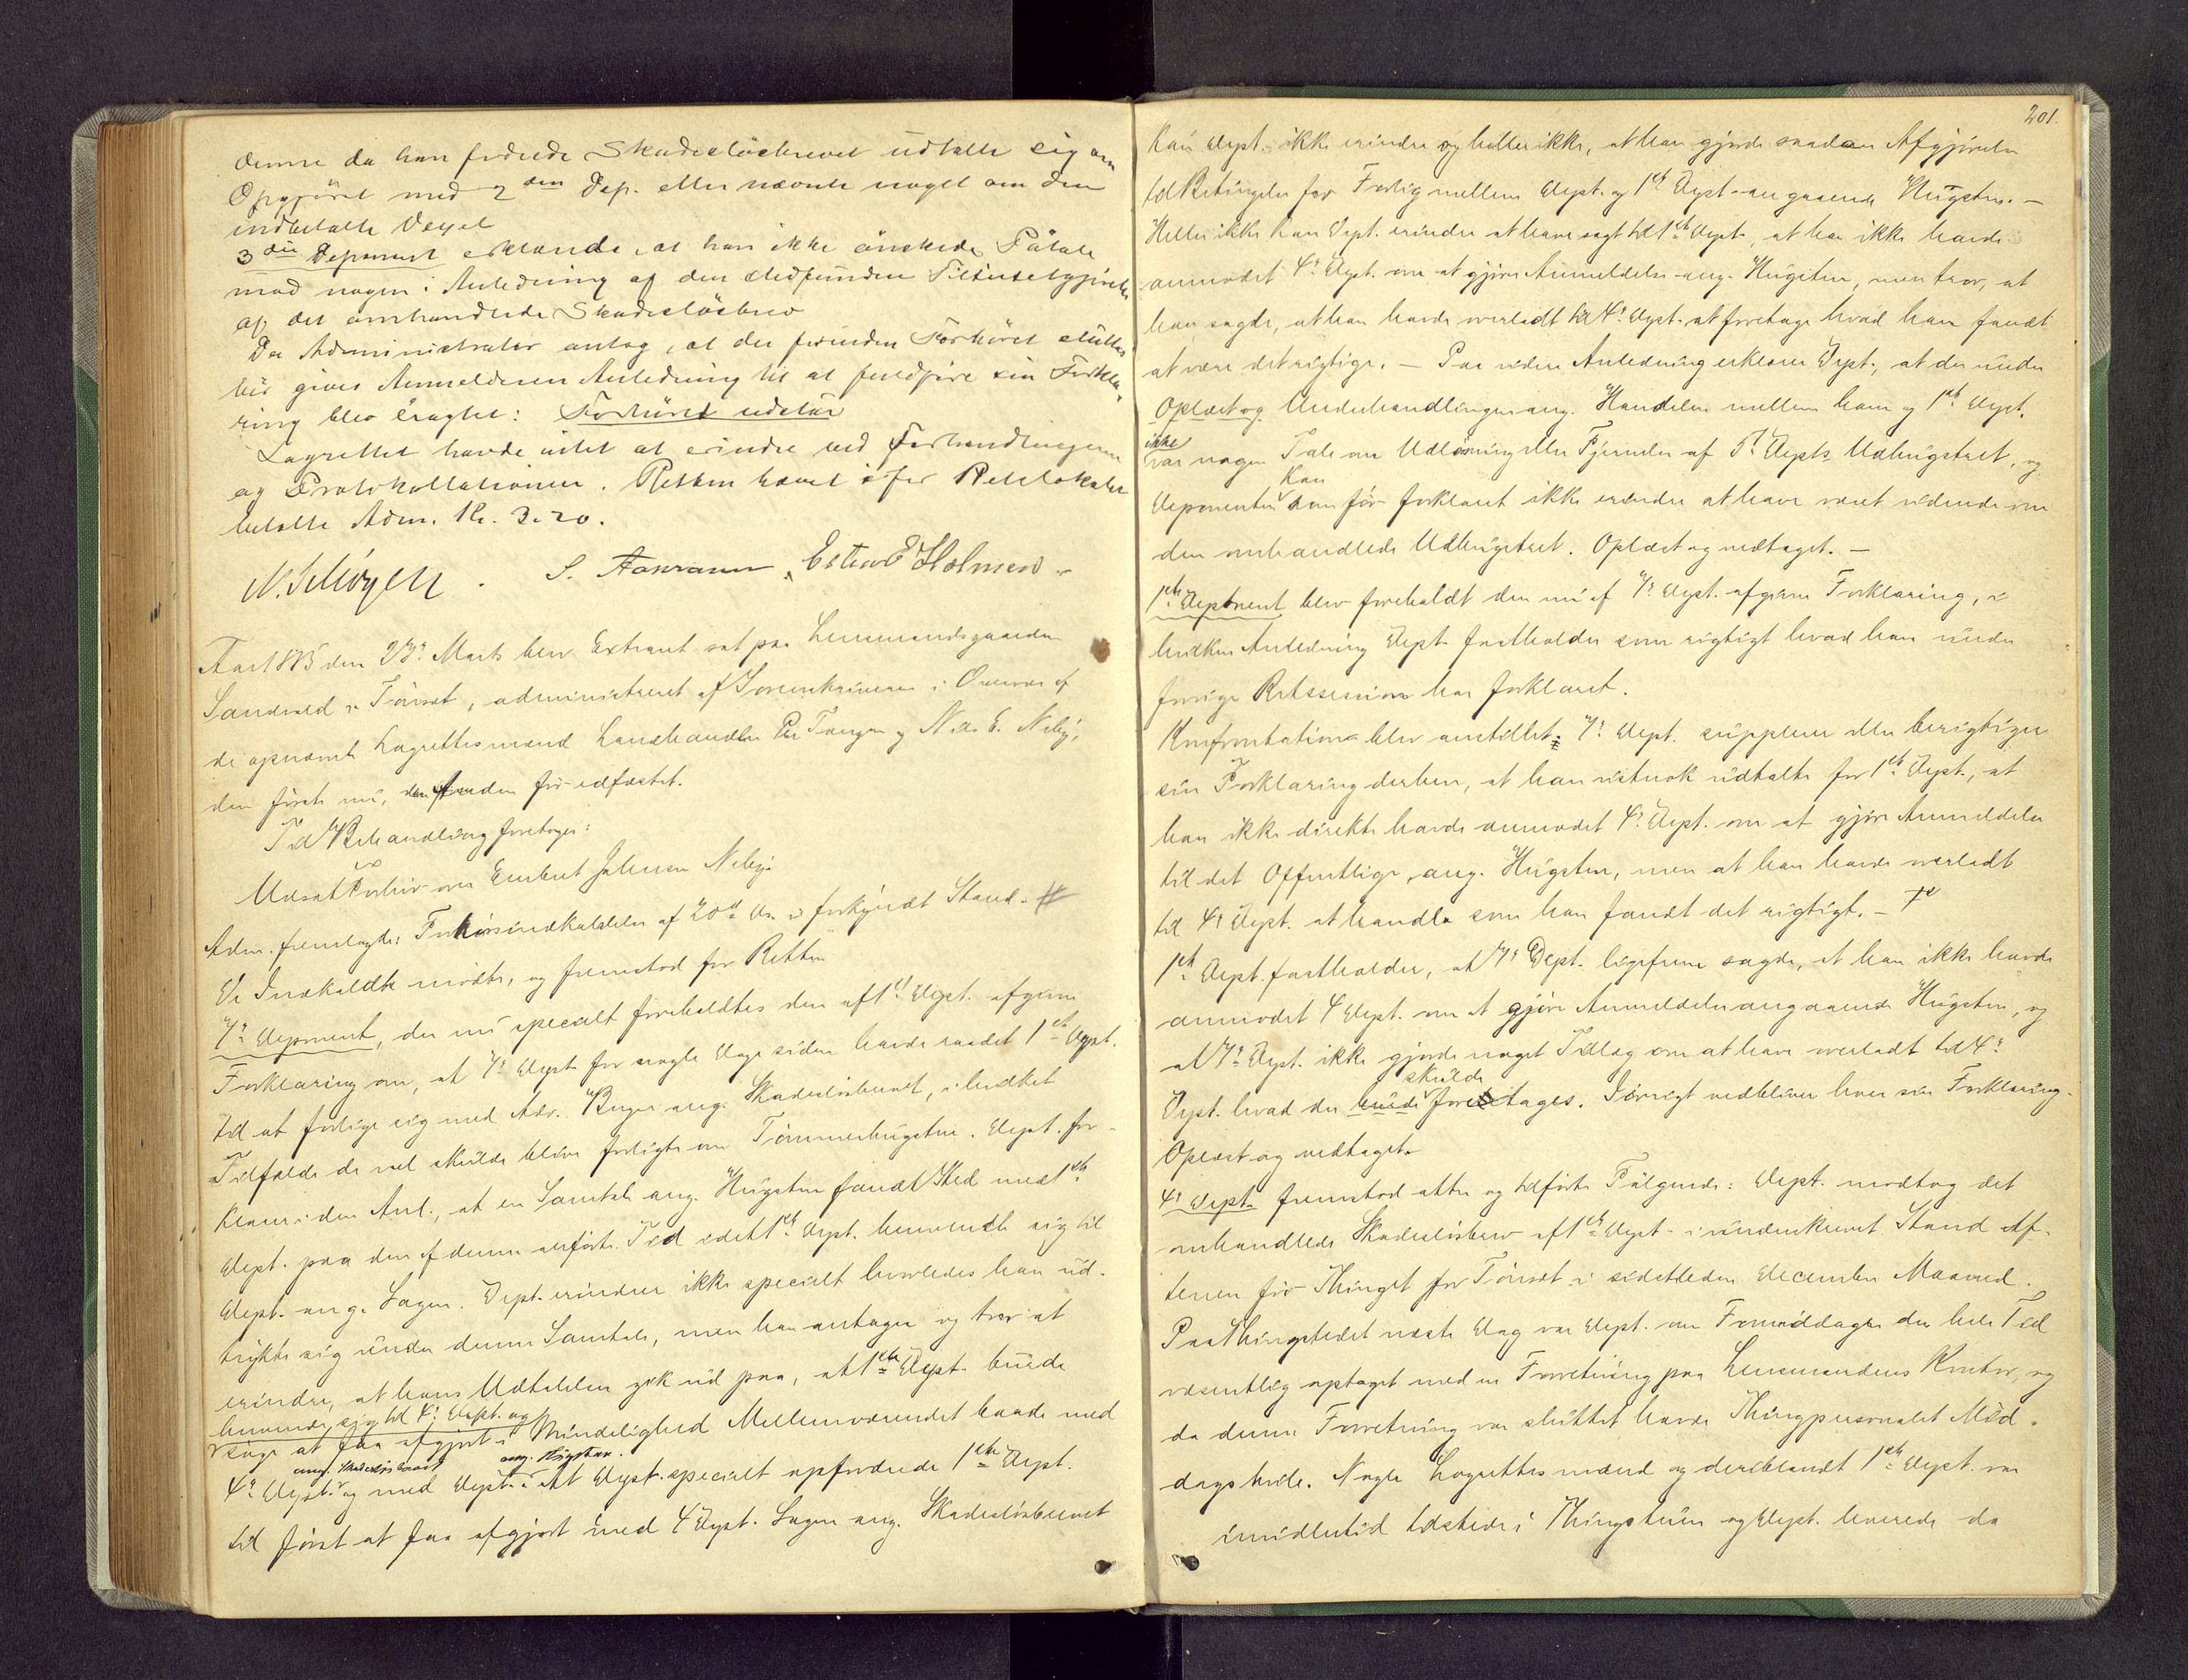 denne da han fordrede Skadeslösbrevet udtalte sig om
Opgjöret med 2den Dep. eller nævnte noget om den
indbetalte Vexel
3die Deponent erklærede, at han ikke önskede Påtale
mod nogen i Anledning af den stedfundne Tilintetgjörelse
af det omhandlede Skadeslösbrev
Da Administrator antog, at der forinden Forhöret sluttes
bör gives Anmelderen Anledning til at fuldföre sin Forkla-
ring blev eragtet: Forhöret udstår
Lagrettet havde intet at erindre ved Forhandlingerne
og Protokollationen. Retten hævet. For Retslokalet
betalte Adm. Kr. 3.20.
N. S. Estend E Holmen
Aar 1895 den 27de Marts blev Extraret sat paa Lensmandsgaarden
Sandvold i Tönset, administreret af Sorenskriveren i Overvær af
de opnævnte Lagrettesmænd Landhandler Per Tangen og Nils E. Neby,
den förste nu, den anden för edfæstet.
Til Behandling foretoges:
Udsat Forhör over Embret Johnsen Neby.
Adm. fremlagde Forhörsindkaldelse af 20de ds. i forkyndt Stand.
De Indkaldte mödte, og fremstod for Retten
7de Deponent, der nu specielt foreholdtes den af 1ste Dept. afgivne
Forklaring om, at 7de Dept. for nogle Dage siden havde raadet 1ste Dept.
til at forlige sig med Adv. Bugge ang. Skadeslösbrevet, i hvilket
Tilfælde de vel skulde blive forligte om Tömmerhugsten. Dept. for-
klarer i den Anl., at en Samtale ang. Hugsten fandt Sted med 1ste
Dept. paa den af denne anförte Tid idet 1ste Dept. henvendte sig til
Dept. ang. Sagen. Dept. erindrer ikke specielt hvorledes han ud-
trykte sig under denne Samtale, men han antager og tror at
erindre, at hans Udtalelse gik ud paa, at 1ste Dept. burde
henvende sig til 4de Dept. og
söge at faa afgjort i Mindelighed Mellemværendet baade med
ang. Skadeslösbrevet ang. Hugsten.
4de Dept. og med Dept. At Dept. specielt opfordrede 1ste Dept.
til först at faa afgjort med 4 Dept. Sagen ang. Skadeslösbrevet
201.
kan Dept. ikke erindre og heller ikke, at han gjorde saadan Afgjörelse
til Betingelse for Forlig mellem Dept. og 1ste Dept. angaaende Hugsten. —
Heller ikke kan Dept. erindre at have sagt til 1ste Dept., at han ikke havde
anmodet 4de Dept. om at gjöre Anmeldelse ang. Hugsten, men tror, at
han sagde, at han havde overladt til 4de Dept. at foretage hvad han fandt
at være det rigtige. — Paa videre Anledning erklærer Dept., at der under
Oplæst og Underhandlingen ang. Handelen mellem ham og 1ste Dept.
ikke
var nogen Tale om Udlösning eller Fjernelse af Depts Udhugstret, og
kan
Deponenten som för forklaret ikke erindre at have været vidende om
den omhandlede Udhugstret. Oplæst og vedtaget. —
1ste Deponent blev foreholdt den nu af 7de Dept. afgivne Forklaring, i
hvilken Anledning Dept. fastholder som rigtigt hvad han under
forrige Retssession har forklaret.
Konfrontation blev anstillet: 7de Dept. supplerer eller berigtiger
sin Forklaring derhen, at han vistnok udtalte for 1ste Dept., at
han ikke direkte havde anmodet 4de Dept. om at gjöre Anmeldelse
til det Offentlige, ang. Hugsten, men at han havde overladt
til 4de Dept. at handle som han fandt det rigtigt. —
1ste Dept. fastholder, at 7de Dept. ligefrem sagde, at han ikke havde
anmodet 4 Dept. om at gjöre Anmeldelse angaaende Hugsten, og
at 7de Dept. ikke gjorde noget Tillæg om at have overladt til 4de
skulde
Dept. hvad der burde foretages. Iövrigt vedbliver hver sin Forklaring.
Oplæst og vedtaget.
4de Dept. fremstod atter og tilförte Fölgende: Dept. modtog det
omhandlede Skadeslösbrev af 1ste Dept. i underskrevet Stand Af-
tenen för Thinget for Tönset i sidstleden December Maaned.
Paa Thingstedet næste Dag var Dept. om Formiddagen den hele Tid
væsentlig optaget med en Forretning paa Lensmandens Kontor, og
da denne Forretning var sluttet havde Thingpersonalet Mid-
dagshvile. Nogle Lagrettesmænd og deriblandt 1ste Dept. var
imidlertid tilstede i Thingstuen og Dept. leverede da